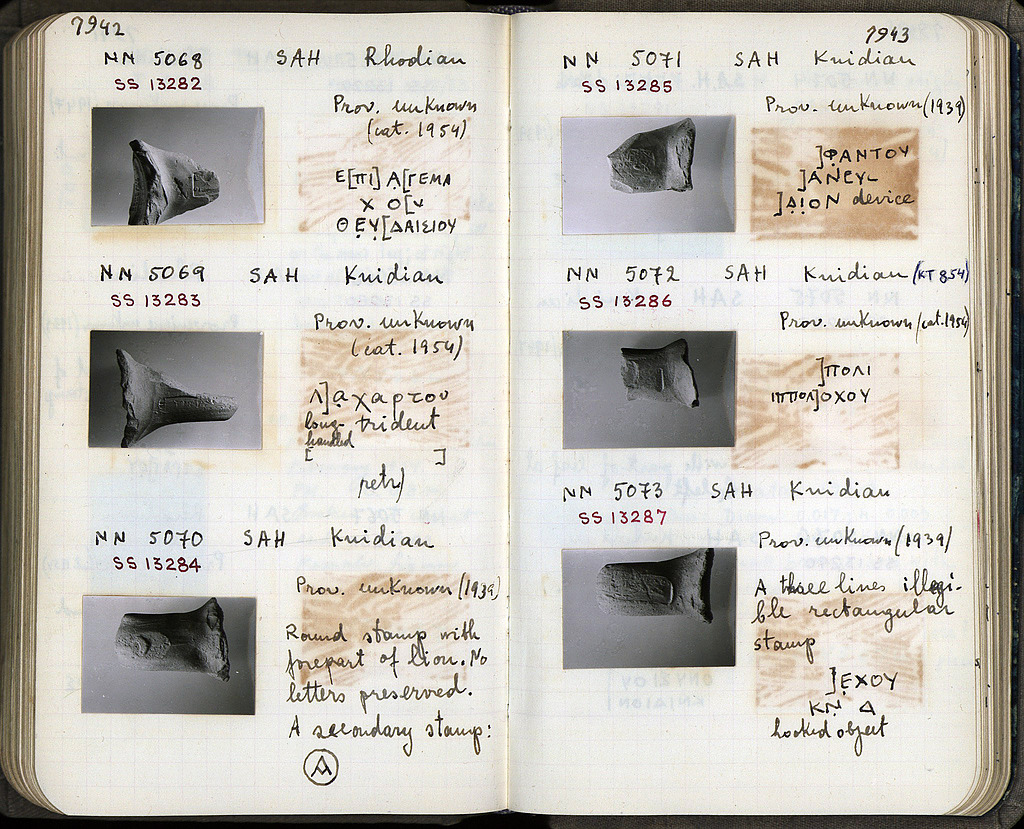 7942
NN 5068 SAH Rhodian
SS 13282
Prov. unknown
(cat. 1954)
Ε[ΠΙ] Ạ[ΓΕΜΑ
Χ Ο[Υ
Θ Ẹ Υ̣[ΔΑΙΣΙΟΥ
NN 5069 SAH Knidian
SS 13283
Prov. unknown
(cat. 1954)
Λ]α̣χαρτου
long- trident
handled
[ ]
retr)
NN 5070 SAH Knidian
SS 13284
Prov. unknown (1939)
Round stamp with
forepart of lion. No
letters preserved.
A secondary stamp:
A
7943
NN 5071 SAH Knidian
SS 13285
Prov. unknown (1939)
]Φ̣ΑΝΤΟΥ
]ΑΝΕΥ
]Δ̣Ι̣ΟΝ device
NN 5072 SAH Knidian (KT 854)
SS 13286
Prov. unknown (cat. 1954)
]ΠΟΛΙ
ΙΠΠΟΛ]ΟΧΟΥ
NN 5073 SAH Knidian
SS 13287
Prov. unknown (1939)
A three lines illegi-
ble rectangular
stamp
]Ε̣ΧΟΥ
ΚΝ̣ Δ
hooked object